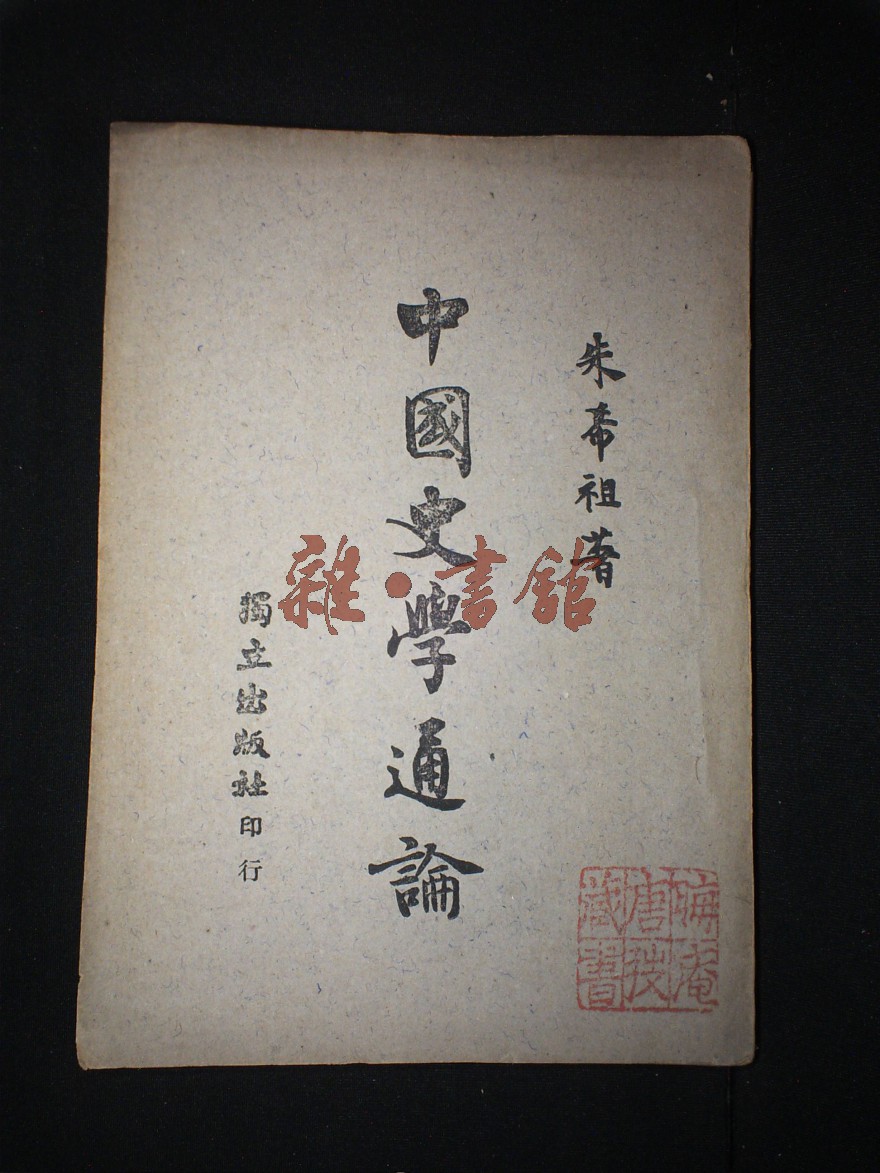 朱希祖著
中國史學通論
獨立出版社印行
雜·書館
晦庵
唐弢
藏書